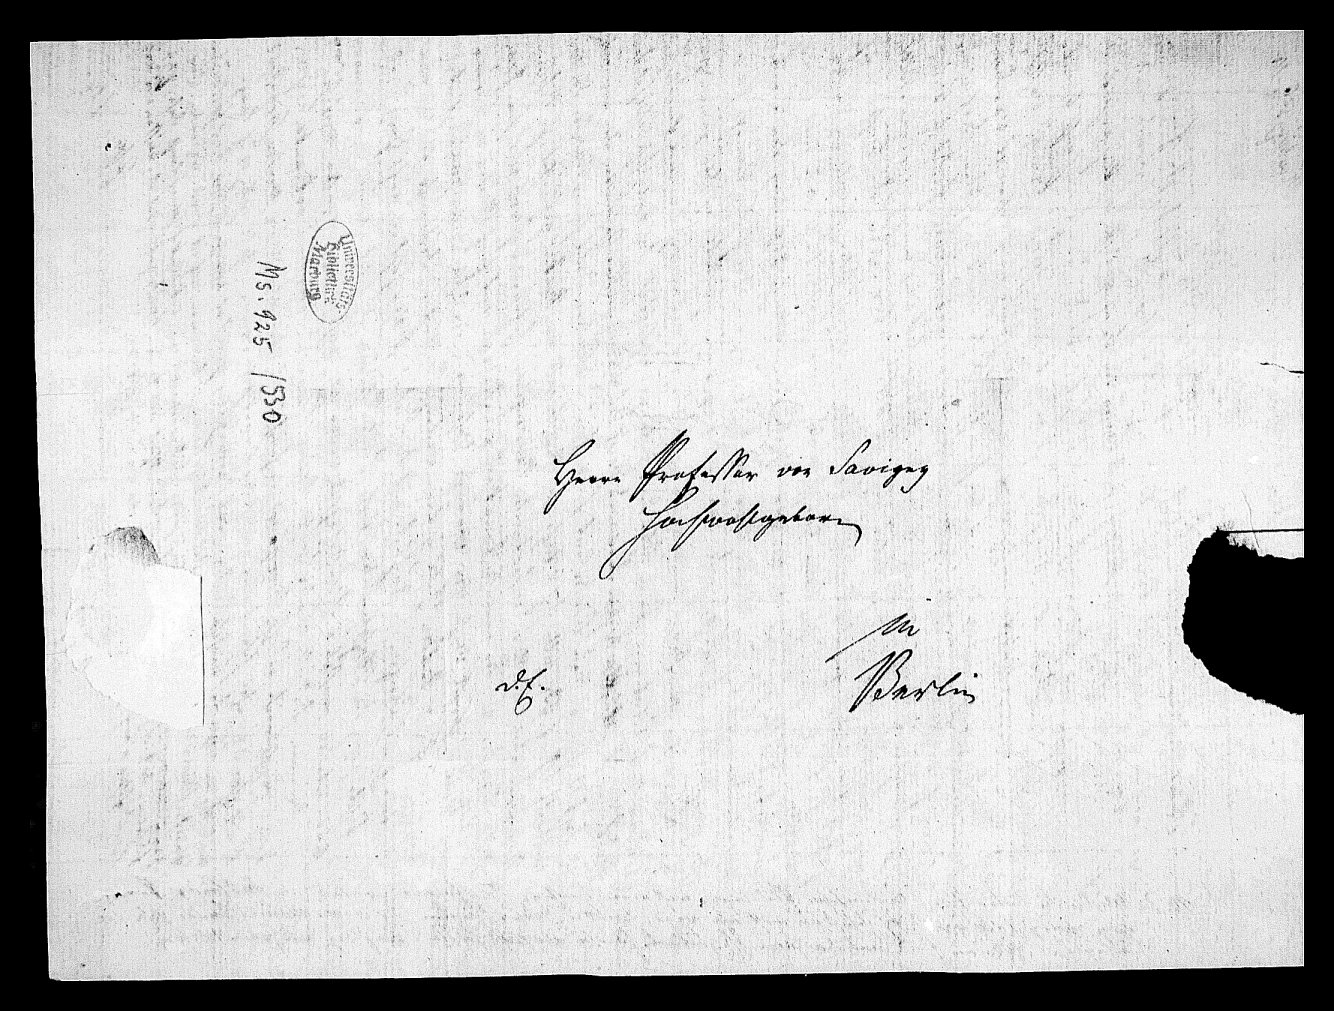 Universitäts
Bibliothek
Marburg
Ms. 925 /530
Herrn Professor von Savigny
Hochwohlgeborn
in
Berlin
d. E.